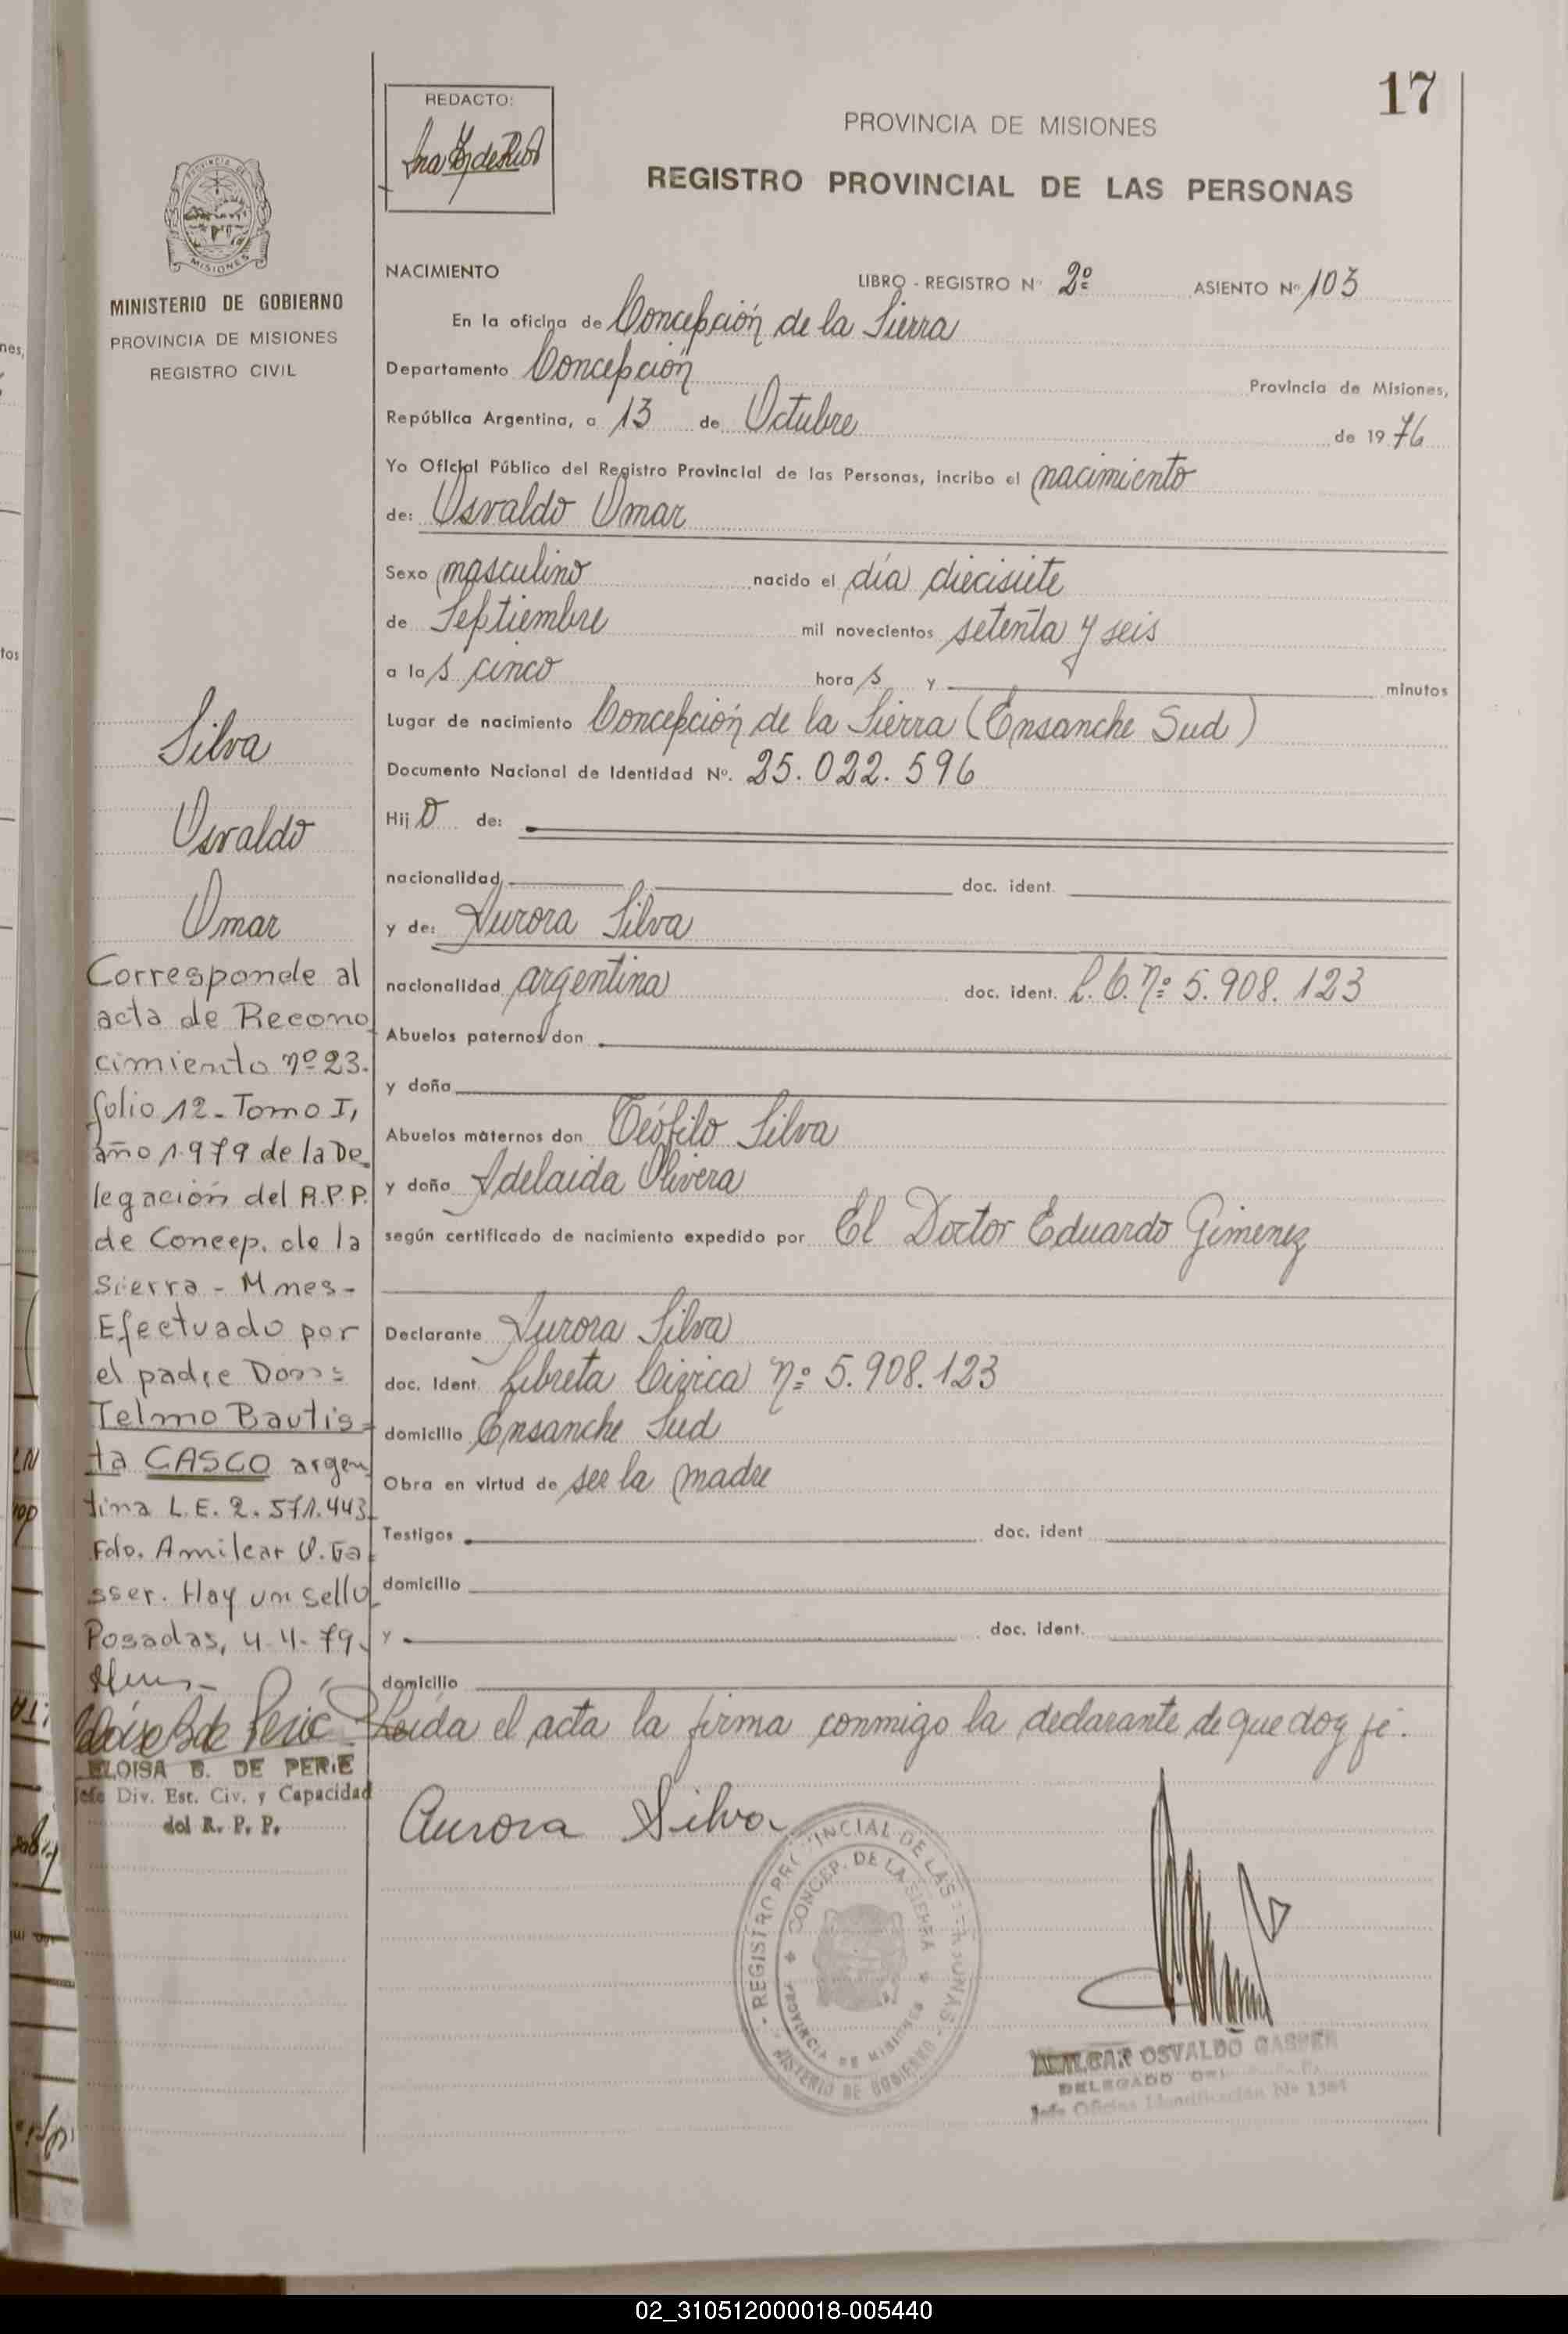 17
REDACTO:
PROVINCIA DE MISIONES
REGISTRO PROVINCIAL DE LAS PERSONAS
MISIONES
MINISTERIO DE GOBIERNO
PROVINCIA DE MISIONES
REGISTRO CIVIL
NACIMIENTO LIBRO - REGISTRO Nº 2º ASIENTO Nº 103
En la oficina de Concepción de la Sierra
Departamento Concepción Provincia de Misiones,
República Argentina, a 13 de Octubre de 1976
Yo Oficial Público del Registro Provincial de las Personas, incribo el nacimiento
de: Osvaldo Omar
Sexo masculino nacido el día diecisiete
de Septiembre mil novecientos setenta y seis
a las cinco horas y minutos
Lugar de nacimiento Concepción de la Sierra (Ensanche Sud)
Documento Nacional de Identidad Nº. 25.022.596
Hijo de:
nacionalidad doc. ident.
y de: Aurora Silva
nacionalidad argentina doc. ident. L.C. nº 5.908.123
Abuelos paternos don
y doña
Abuelos maternos don Teófilo Silva
y doña Adelaida Olivera
según certificado de nacimiento expedido por El Doctor Eduardo Gimenez
Declarante Aurora Silva
doc. Ident. Libreta Cívica nº 5.908.123
domicilio Ensanche Sud
Obra en virtud de ser la madre
Testigos doc. ident
domicilio
y doc. ident.
domicilio
Leída el acta la firma conmigo la declarante de que doy fé.
Aurora Silva
Silva
Osvaldo
Omar
Corresponde al
acta de Recono
cimiento nº 23.
folio 12 - Tomo I,
año 1979 de la De
legación del R.P.P.
de Concep. de la
Sierra - Mnes-
Efectuado por
el padre Don:
Telmo Bautis=
ta CASCO argen
tina L.E. 2.571.443
Fdo. Amilcar O. Ga
sser. Hay un sello
Posadas, 4-4-79
ELOISA B. DE PERIE
Jefe Div. Est. Civ. y Capacidad
del R. P. P.
REGISTRO PROVINCIAL DE LAS PERSONAS
CONCEP. DE LA SIERRA
PROVINCIA DE MISIONES
MINISTERIO DE GOBIERNO
AMILCAR OSVALDO GASSER
DELEGADO
Jefe Oficina Identificación Nº
02_310512000018-005440